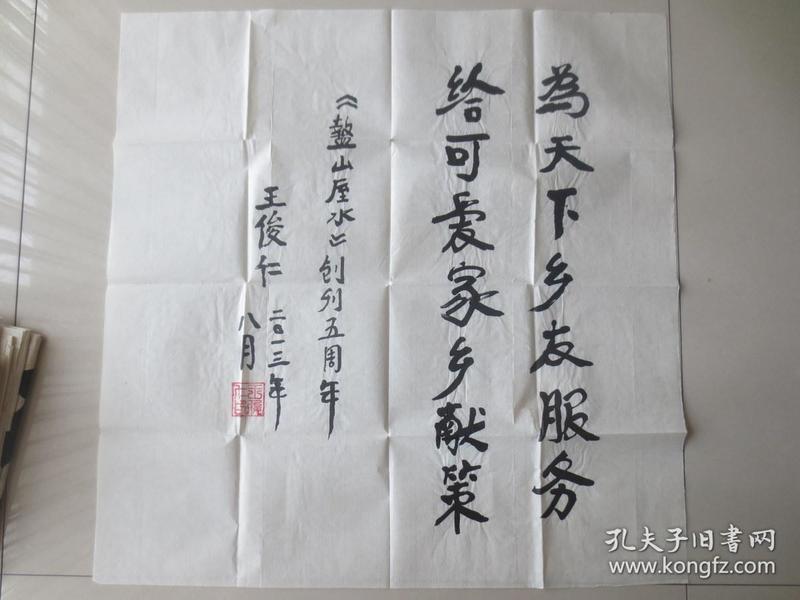 為天下乡友服务
给可爱家乡献策
《盩山厔水》创刋五周年
王俊仁 二〇一三年
八月
孔夫子旧書网
www.kongfz.com